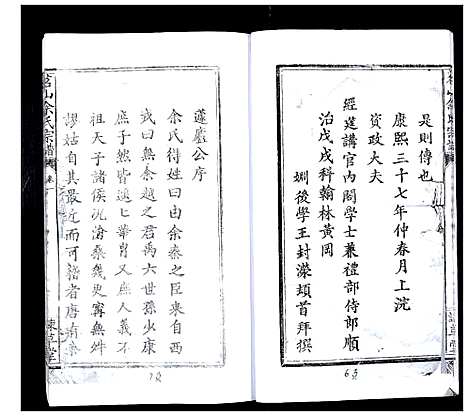 是則傳也
康熙三十七年仲春月上浣
資政大夫
經筵講官內閣學士兼禮部侍郎順
治戊戌科翰林黃岡
姻後學王封溁頓首拜撰
余氏宗譜
蘧廬公序
余氏得姓曰由余秦之臣來自西
戎曰無余越之君禹六世孫少康
庶子然皆遐乜華胄又無人義不
祖天子諸侯況滄桑幾史寗無舛
謬姑自其近而可稽者唐有宗